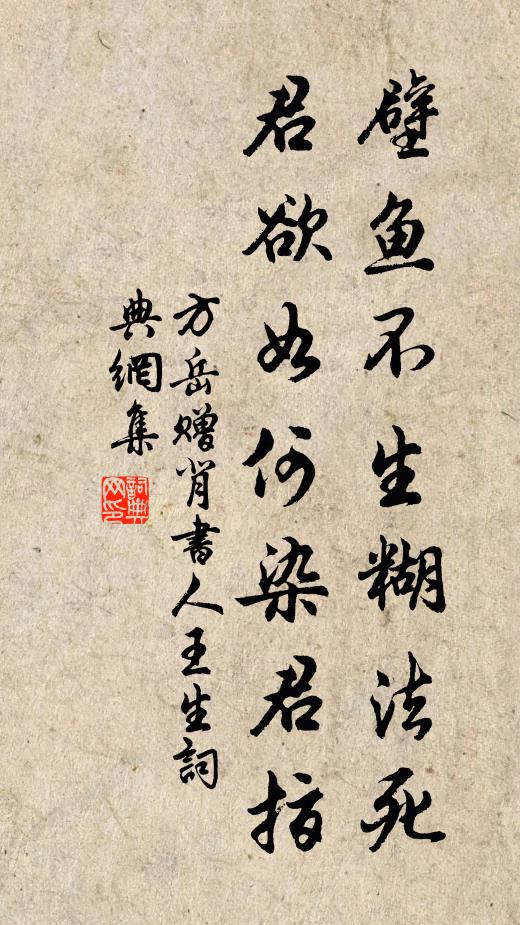 壁鱼不生糊法死
君欲如何染君指
方岳赠肖書人王生詞
典網集
詞典網印